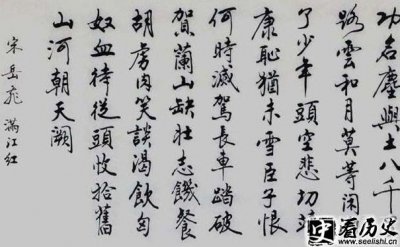 功名塵與土八千
路雲和月莫等闲
了少年頭空悲切靖
康恥猶未雪臣子恨
何時滅駕長車踏破
賀蘭山缺壯志饑餐
胡虜肉笑談渴飲匈
奴血待從頭收拾舊
山河朝天闕
宋岳飛滿江红
看历史
www.seelishi.com